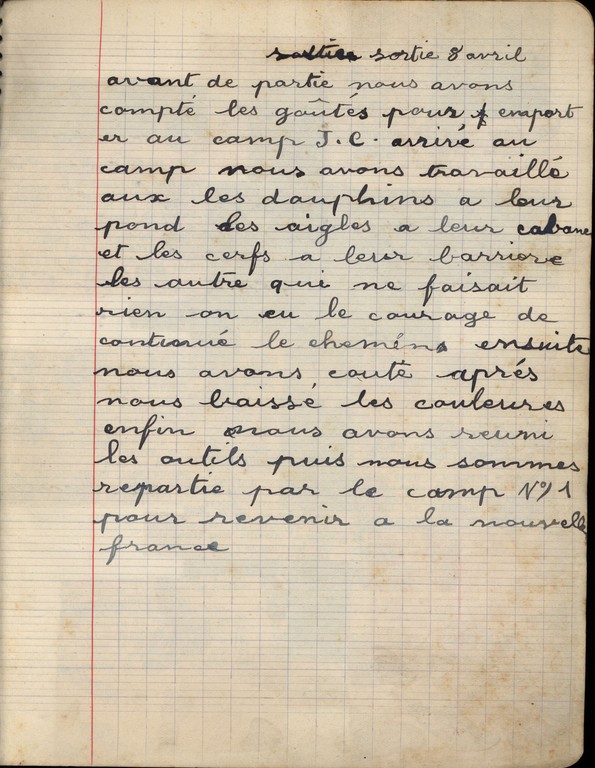 sortie 8 avril
avant de partie nous avons
compté les goûtés pour enaport
er au camp J.C. arrivé au
camp nous avons travaillé
aux les dauphins a leur
pond des aigles a leur cabane
et les cerfs a leur barriere
les autre qui ne faisait
rien on eu le courage de
continué le chemin ensuite
nous avons couté aprés
nous baissé les couleures
enfin nous avons reuni
les outils puis nous sommes
repartie par le camp N°1
pour revenir a la nouvelle
france